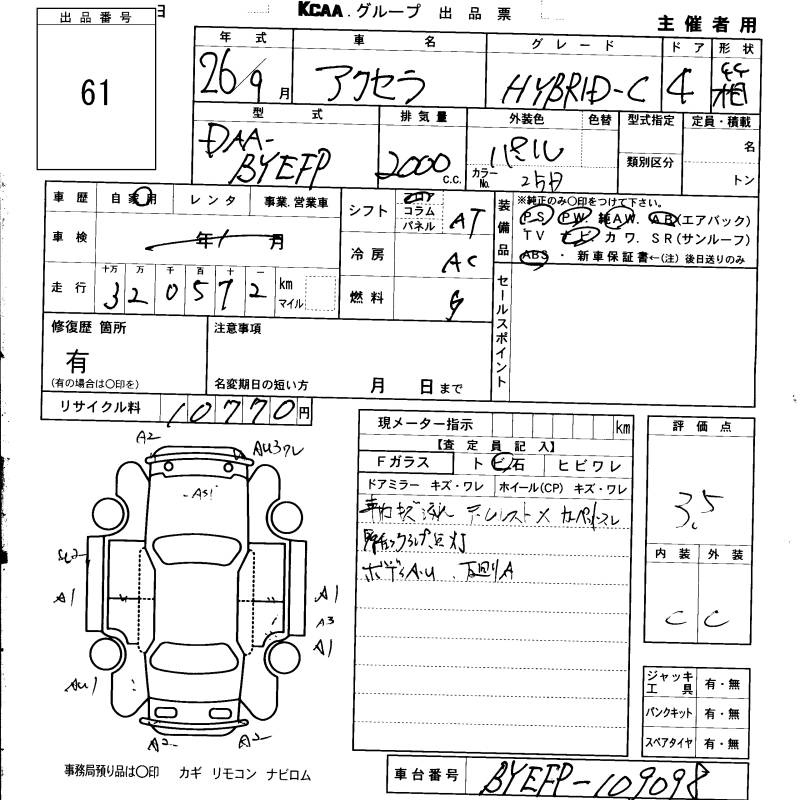 KCAA グループ 出品票
主催者用
出品番号
61
年式 車名 グレード ドア 形状
26/9月 アクセラ HYBRID-C 4 箱
型式 排気量 外装色 色替 型式指定 定員・積載
DAA-
BYEFP
2000 C.C.
パール
カラーNo. 25D
類別区分
名
トン
車歴 自家用 レンタ 事業.営業車
車検 年 月
走行 十万 万 千 百 十 一
320572 km
マイル
シフト フロア コラム パネル AT
冷房 AC
燃料 G
装備品
※純正のみ〇印をつけて下さい。
PS PW 純AW. AB(エアバック)
TV ナビ. カワ. SR(サンルーフ)
ABS ・ 新車保証書←(注) 後日送りのみ
セールスポイント
修復歴 箇所
有
(有の場合は〇印を)
注意事項
名変期日の短い方 月 日まで
リサイクル料 10770円
現メーター指示 km
【査定員記入】
Fガラス ト ビ 石 ヒビワレ
ドアミラー キズ・ワレ ホイール(CP) キズ・ワレ
ボディAu. 下回りA
評価点
3.5
内装 外装
C C
ジャッキ工具 有・無
パンクキット 有・無
スペアタイヤ 有・無
A2
AU3ワレ
A1
A1
A3
A1
AU1
A2
A2
事務局預り品は〇印 カギ リモコン ナビロム
車台番号 BYEFP-109098